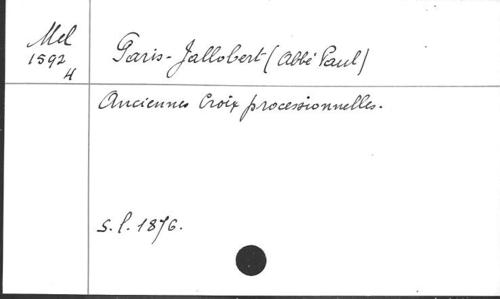 Mel
1592
4
Paris-Jallobert (Abbé Paul)
Anciennes Croix processionnelles.
s.l. 1876.